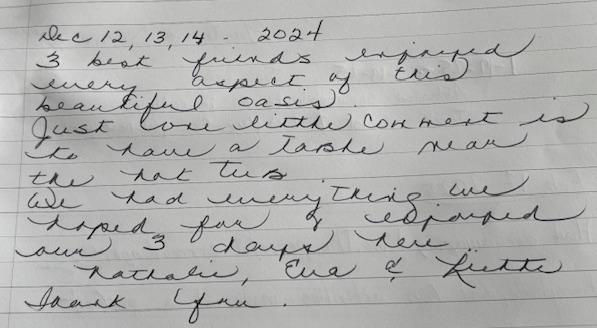 Dec 12, 13, 14 - 2024
3 best friends enjoyed
every aspect of this
beautiful oasis.
Just one little comment is
to have a table near
the hot tub
We had everything we
hoped for & enjoyed
our 3 days here
Nathalie, Eva & Liette
Thank You.